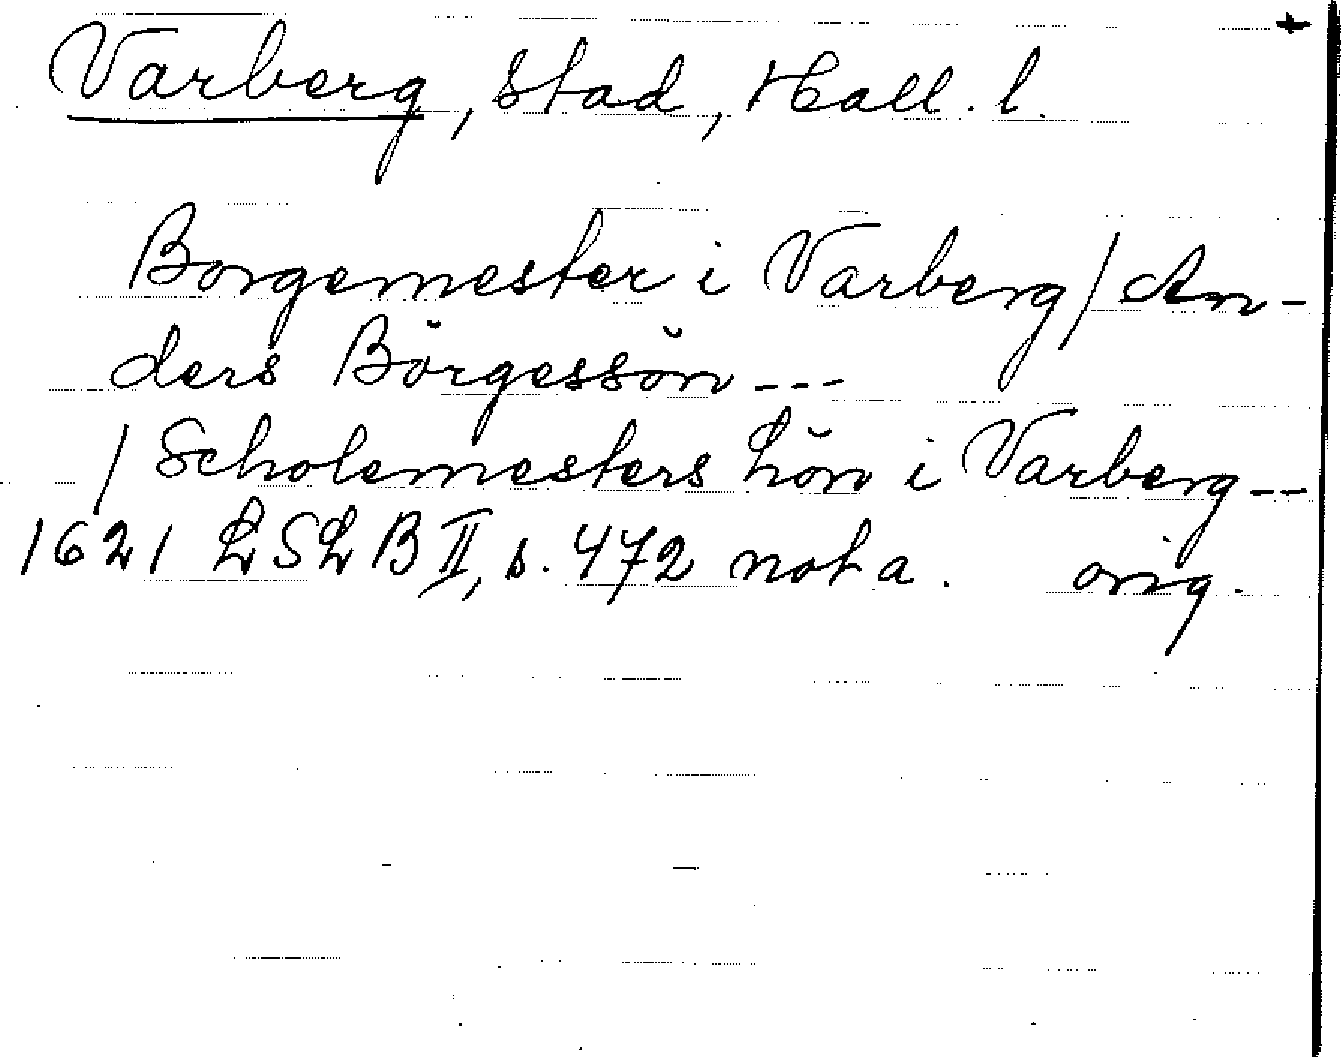 Varberg, stad, Hall. l.
Borgemester i Varberg / An-
ders Börgessön ---
/ Scholemesters Lön i Varberg --
1621 LSLB II, s. 472 nota. orig.